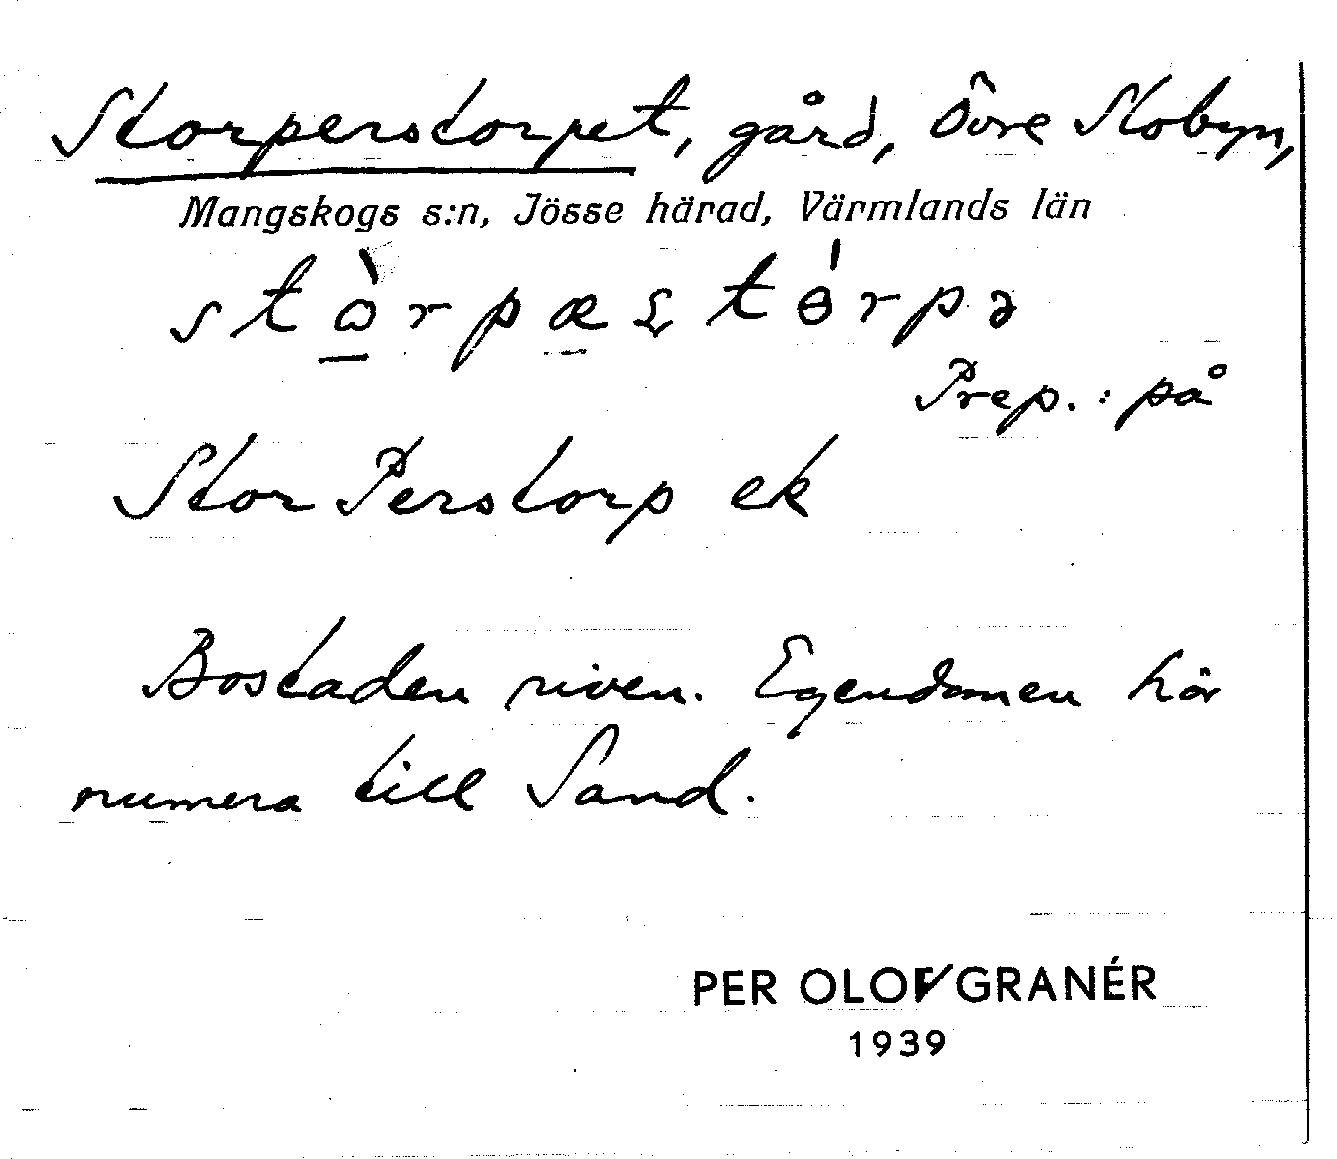 Storperstorpet, gård, Övre Slobyn,
Mangskogs s:n, Jösse härad, Värmlands län
Prep. : på
Stor Perstorp ek
Bostaden riven. Egendomen hör
numera till Sand.
PER OLOV GRANÉR
1939